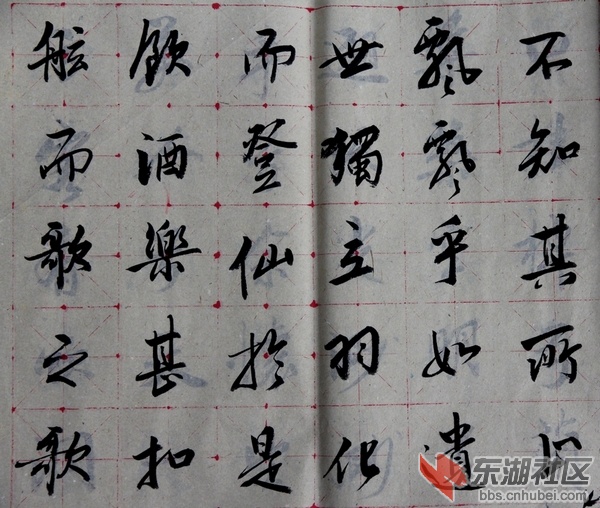 不知其所止
飄飄乎如遺
世獨立羽化
而登仙於是
飲酒樂甚扣
舷而歌之歌
东湖社区
bbs.cnhubei.com